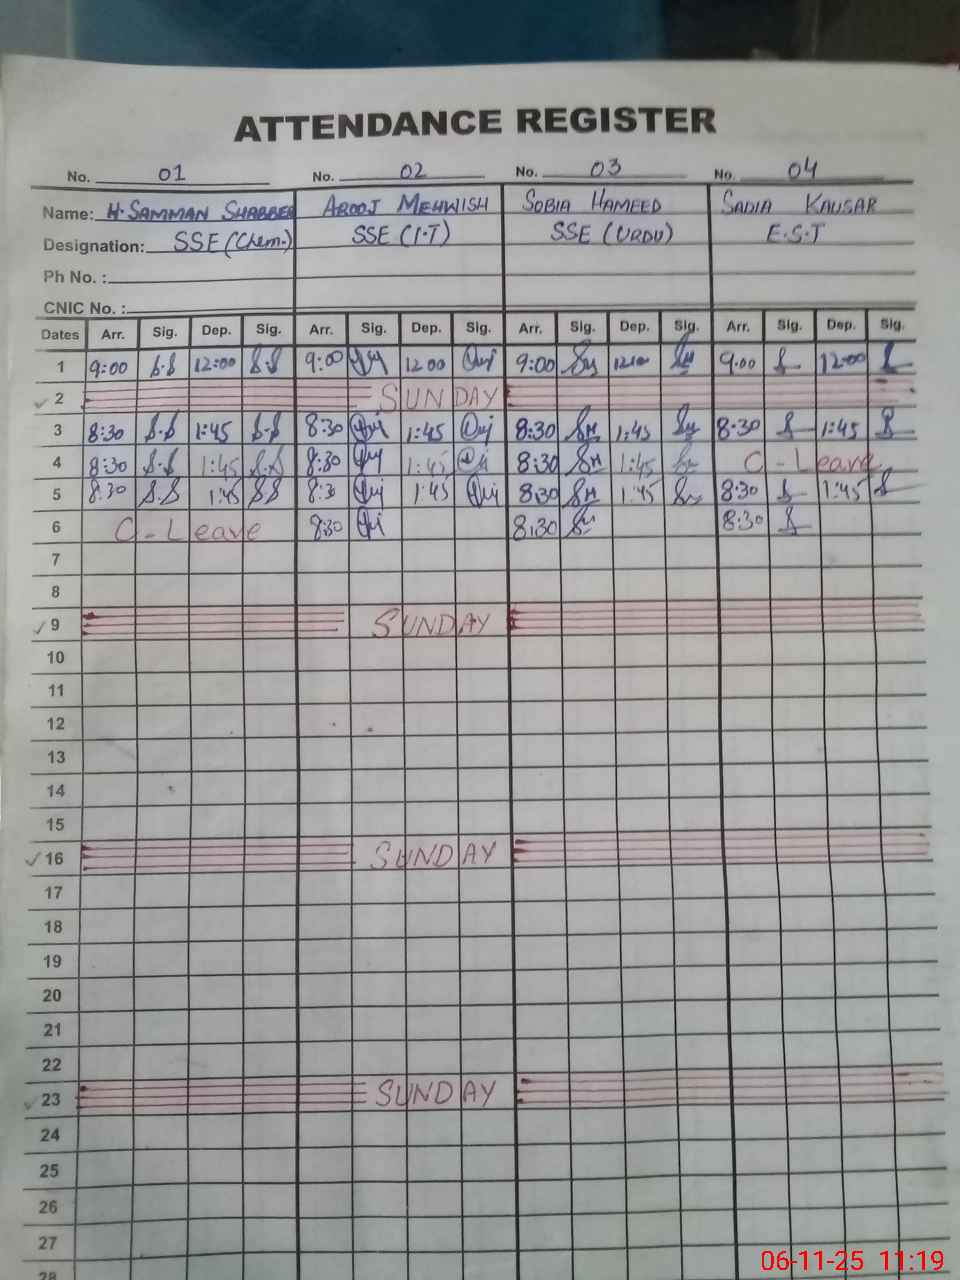 ATTENDANCE REGISTER
No. 01 No. 02 No. 03 No. 04
Name: H. SAMMAN SHABBER AROOJ MEHWISH SOBIA HAMEED SADIA KAUSAR
Designation: SSE (Chem.) SSE (I.T) SSE (URDU) E.S.T
Ph No. :
CNIC No. :
Dates Arr. Sig. Dep. Sig. Arr. Sig. Dep. Sig. Arr. Sig. Dep. Sig. Arr. Sig. Dep. Sig.
1 9:00 S.S 12:00 S.S 9:00 12 00 9:00 12:00 9:00 12:00
2 SUNDAY
3 8:30 S.S 1:45 S.S 8:30 1:45 8:30 1:45 8:30 1:45
4 8:30 S.S 1:45 S.S 8:30 1:45 8:30 1:45 C-Leave
5 8:30 S.S 1:45 S.S 8:30 1:45 8:30 1:45 8:30 1:45
6 C-Leave 8:30 8:30 8:30
7
8
9 SUNDAY
10
11
12
13
14
15
16 SUNDAY
17
18
19
20
21
22
23 SUNDAY
24
25
26
27
28
06-11-25 11:19